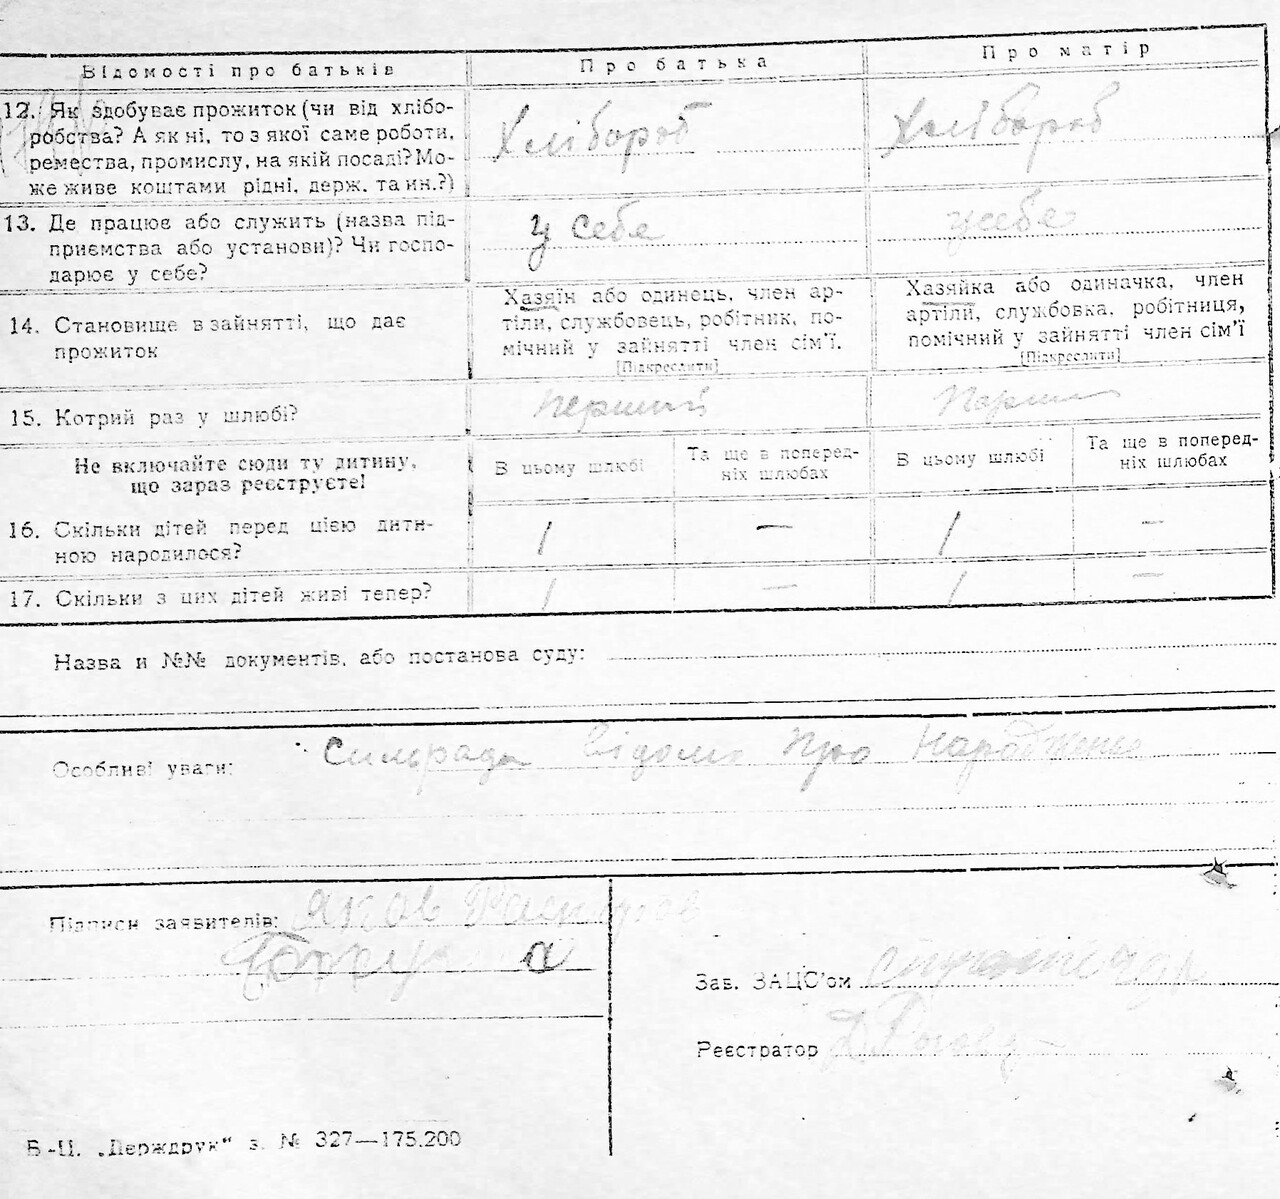 Відомості про батьків Про батька Про матір
12. Як здобуває прожиток (чи від хлібо-
робства? А як ні, то з якої саме роботи,
ремества, промислу, на якій посаді? Мо-
же живе коштами рідні, держ. та ин.?)
Хлібороб Хлібороб
13. Де працює або служить (назва під-
приємства або установи)? Чи госпо-
дарює у себе?
у себе у себе
14. Становище в зайнятті, що дає
прожиток
Хазяїн або одинець, член ар-
тіли, службовець, робітник, по-
мічний у зайнятті член сім'ї.
[Підкреслити]
Хазяйка або одиначка, член
артіли, службовка, робітниця,
помічний у зайнятті член сім'ї
[Підкреслити]
15. Котрий раз у шлюбі? перший
Не включайте сюди ту дитину,
що зараз реєструєте!
В цьому шлюбі
Та ще в поперед-
ніх шлюбах
В цьому шлюбі
Та ще в поперед-
ніх шлюбах
16. Скільки дітей перед цією дити-
ною народилося?
1 — 1 —
17. Скільки з цих дітей живі тепер? 1 — 1 —
Назва и №№ документів, або постанова суду:
Особливі уваги: відомо про народжене
Підписи заявителів: Яков
Зав. ЗАЦС'ом
Реєстратор
Б-Ц. „Держдрук" з. № 327—175.200